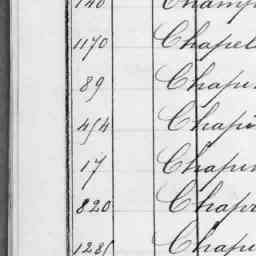 140 Champ
1170 Chapel
89 Chapi
454 Chapi
17 Chapin
820 Chapi
1285 Chapi